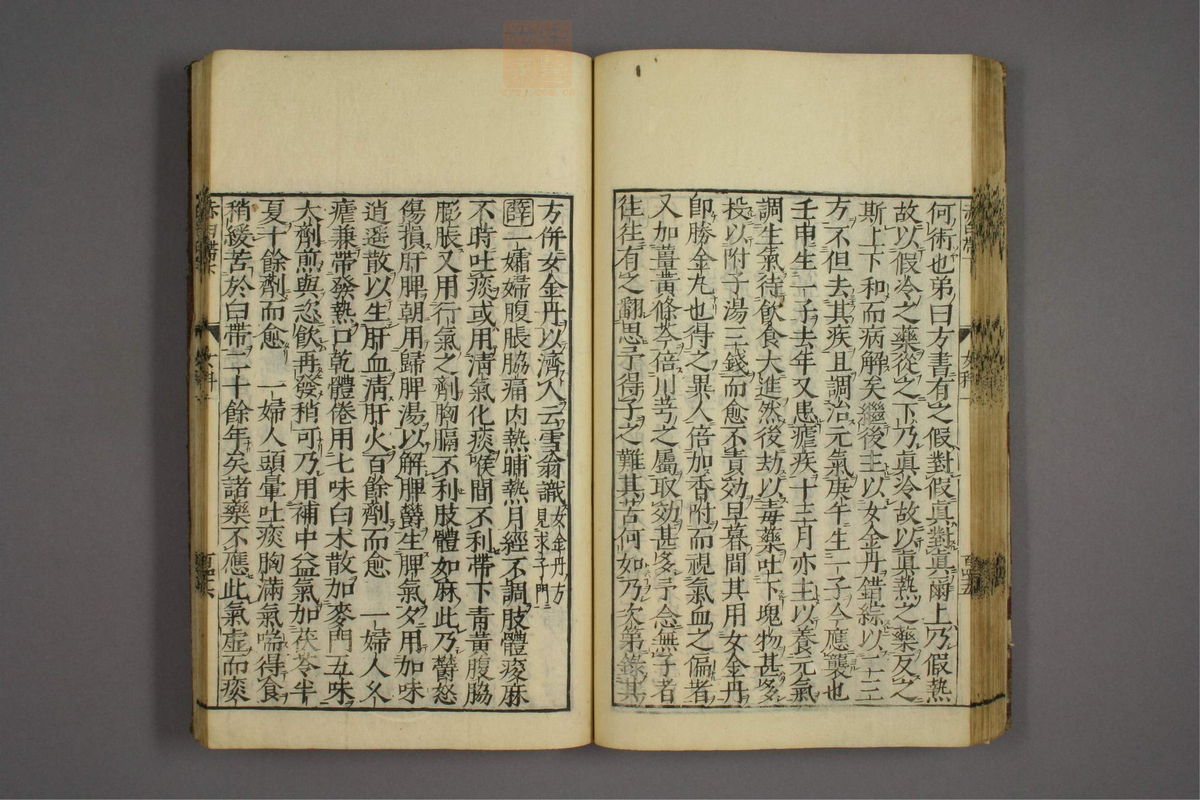 何術也弟曰方書有之假對假真對真爾上乃假熱
故以假冷之藥從之下乃真冷故以真熱之藥反之
斯上下和而病解矣繼後主以女金丹錯綜以二十三
方不但去其疾且調治元氣庚午生一子今應襲也
壬申生一子去年又患瘧疾十二月亦主以養元氣
調生氣待飲食大進然後劫以毒藥吐下塊物甚多
投以附子湯三錢而愈不責効旦暮間其用女金丹
卽勝金丸也得之異人倍加香附而視氣血之偏者
又加薑黃條芩倍川芎之屬取効甚多予念無子者
往往有之翻思予得子之難其苦何如乃次第錄其
方併女金丹以濟人云雪翁識女金丹方見求子門
薛一孀婦腹脹脇痛内熱晡熱月經不調肢體痠麻
不時吐痰或用淸氣化痰喉間不利帶下青黃腹脇
膨脹又用行氣之劑胸膈不利肢體如麻此乃欝怒
傷損肝脾朝用歸脾湯以解脾欝生脾氣夕用加味
逍遥散以生肝血淸肝火百餘劑而愈 一婦人久
瘧兼帶發熱口乾體倦用七味白木散加麥門五味
大劑煎與恣飲再發稍可乃用補中益氣加茯苓半
夏十餘劑而愈 一婦人頭暈吐痰胸滿氣喘得食
稍緩苦於白帶二十餘年矣諸藥不應此氣虛而痰
赤白帶下
女科